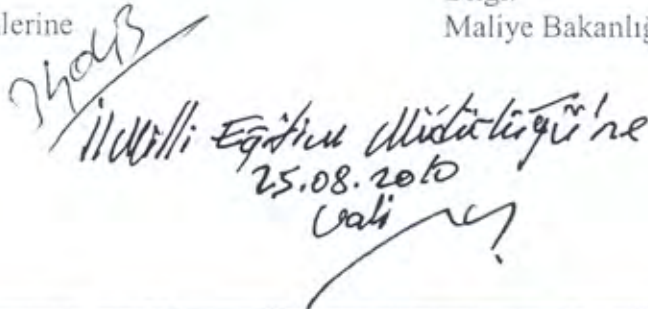 lerine
Maliye Bakanlığ
İl Milli Eğitim Müdürlüğü'ne
25.08.2010
Vali